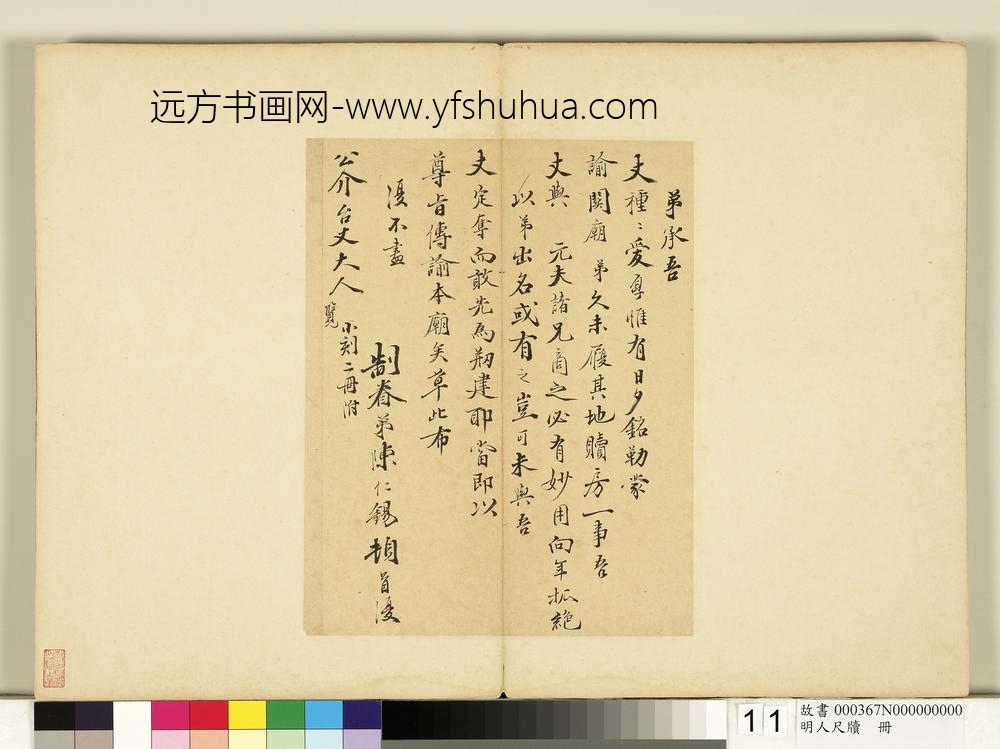 远方书画网-www.yfshuhua.com
弟承吾
丈種〻愛厚惟有日夕銘勒蒙
諭関廟弟久未履其地贖房一事吾
丈與元夫諸兄商之必有妙用向年孤絶
以弟出名或有之豈可未與吾
丈定奪而敢先為剏建耶當即以
尊旨傳諭本廟矣草此布
復不盡
制眷弟陳仁錫頓首復
公介台丈大人
小刻二冊附
覽
11
故書 000367N000000000
明人尺牘 冊